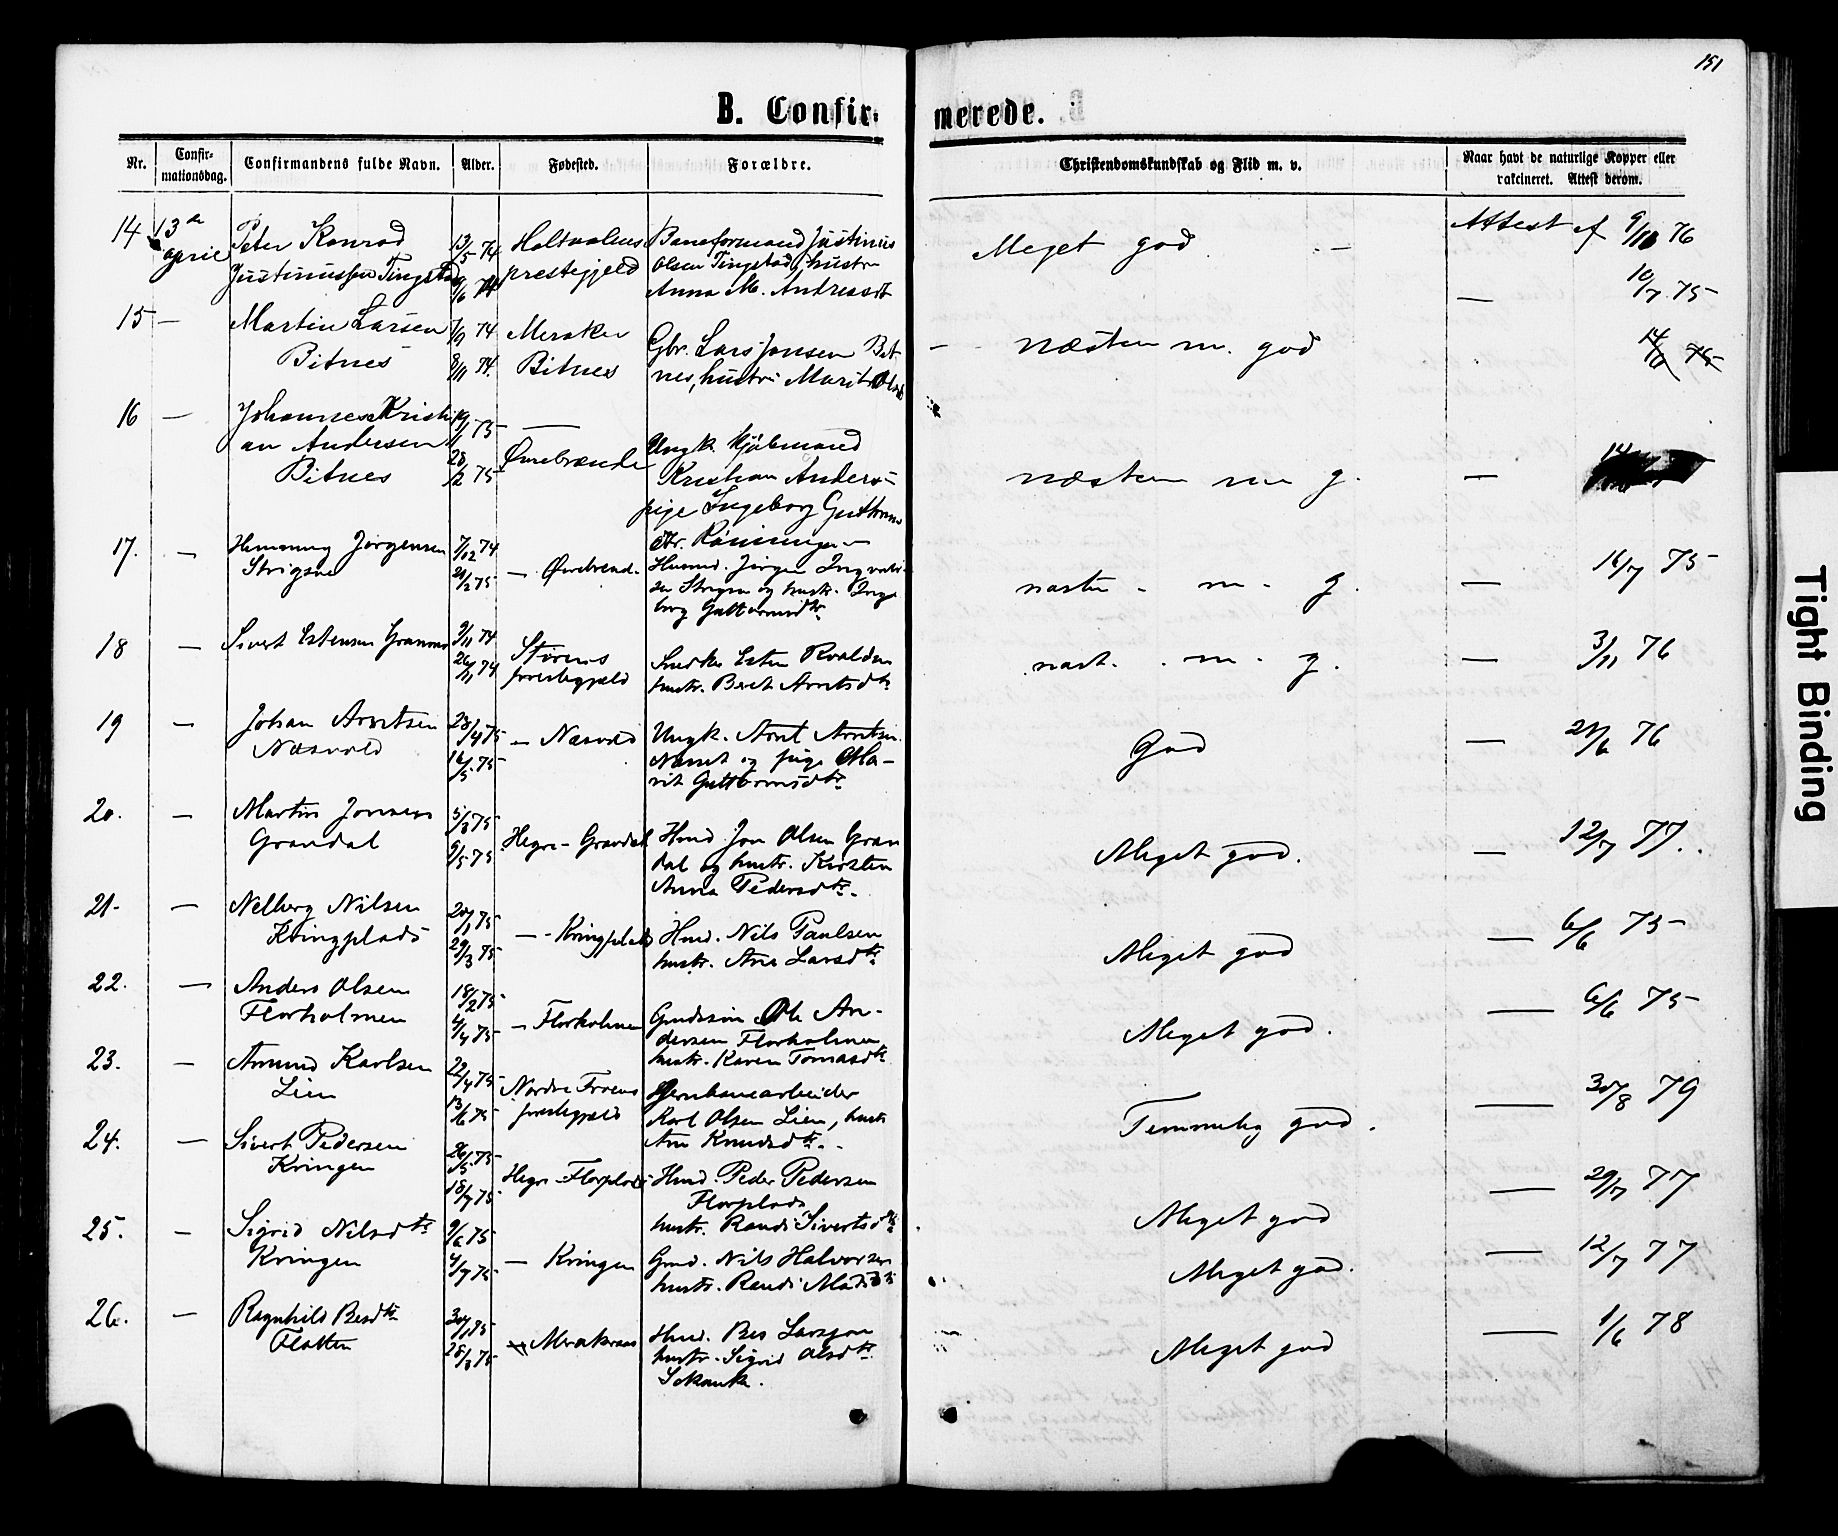 151
B. Confirmerede.
Nr. Confirmationsdag. Confirmandens fulde Navn. Alder. Fødested. Forældre. Christendomskundskab og Flid m. v. Naar havt de naturlige Kopper eller vakcineret. Attest derom.
14 13de april Peter Konrad Justinussen Tingstad 13/5 74 Holtaalens prestegjeld Baneformand Justinus
Olsen Tingstad, hustru
Anna M. Andreasdt
Meget god Attest af 9/10 76
15 — Martin Larsen Bitnes 74 8/11 74. Meraker Bitnes Gbr. Lars Jonsen Bit
nes, hustru Marit Olsd
— Næsten m. god — 10/7 75
16 — Johannes Kristi
an Andersen
Bitnes
75 28/2 75 — Øvrebrænde
Ungk. Kjøbmand
Kristian Anders
pige Ingeborg Guttorms
dtr. Rønningen
næsten m g. —
17. — Hemming Jørgensen
7/12 74 21/2 75 — Øvrebrend.
Husmd. Jørgen
og hustr. Inge
borg Guttormsdtr.
næsten m. g. — 16/7 75
18 — Sivert Estensen 9/11 74 26/11 74 Størens prestegjæld
Esten Roaldsen
hustr. Beret Arntsdtr
næst. m. g. — 3/11 76
19 — Johan Arntsen
Næsvold
23/4 75 16/5 75 — Næsvold
Ungk. Arnt Arntsen
og pige Ma-
rit Guttormsdtr.
God — 21/6 76
20. — Martin Jonsen
Grandal
5/3 75 9/5 75 Hegre — Grandal
Hmd Jon Olsen Gran
dal og hustr. Kirsten
Anna Pedersdtr.
Meget god. — 12/7 77.
21. — Nelberg Nilsen
Kringplads
75 29/3 75 — Kringplads
Hmd. Nils Paulsen
hustr. Ane Larsdtr.
Meget god — 6/6 75
22. — Anders Olsen
Florholmen
18/2 75 4/4 75 — Florholmen
Ole An-
dersen Florholmen
hustr. Karen Tomasdtr
Meget god. — 6/6 75
23. — Amund Karlsen
Lien
22/4 75 13/6 75 Nordre Froens prestegjæld
Jernbanearbeider
Karl Olsen Lien, hustr
Ane Knudsdtr.
Temmelig god. — 30/8 79
24. — Sivert Pedersen
Kringen
26/5 75 18/7 75 Hegre — Florplads
Hmd. Peder Pedersen
Florplads
hustr. Randi Sivertsdtr
Meget god — 29/7 77
25. — Sigrid Nilsdtr
Kringen
9/6 75 4/7 75 — Kringen
Gmd. Nils Halvorsen
hustr. Randi
Meget god. — 12/7 77
26. — Ragnhild Besdtr
Flatten
75 28/3 75 Merakeraas
Hmd. Bes Larsson
hustr. Sigrid Olsdtr.
Meget god — 1/6 78
Tight Binding